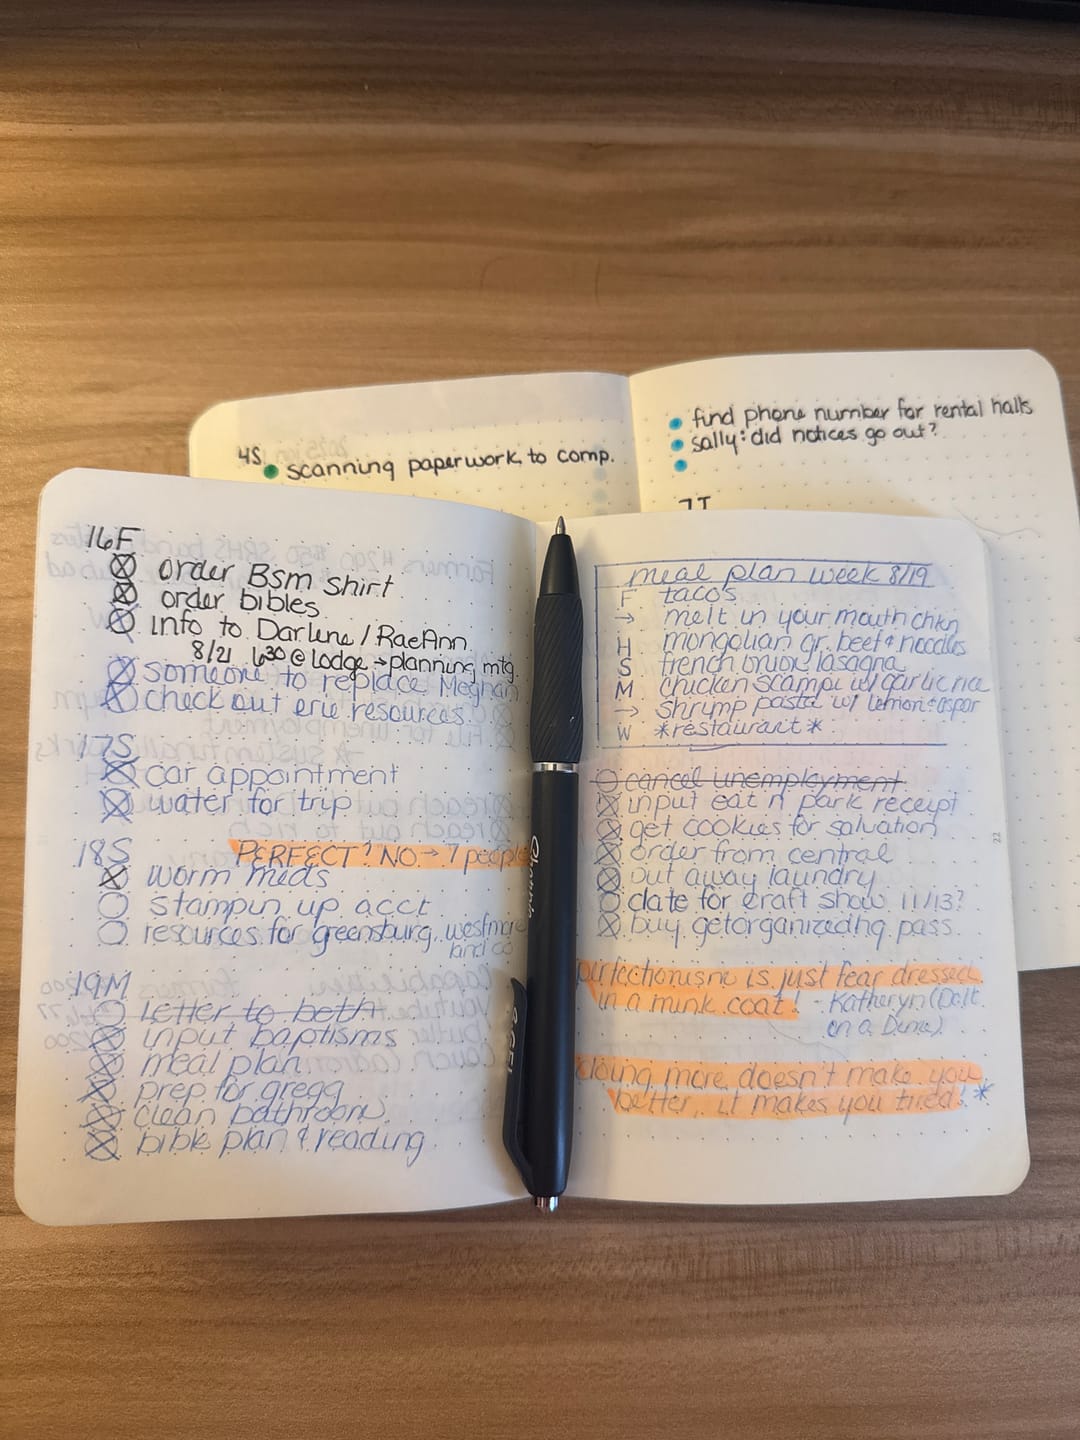 4S
scanning paperwork to comp.
find phone number for rental halls
sally: did notices go out?
7T
16F
order Bsm shirt
order bibles
info to Darlene / RaeAnn
8/21 6:30 @ Lodge → planning mtg.
someone to replace Meghan
check out erie resources
17S
car appointment
water for trip
18S PERFECT? NO → 7 people
worm meds
stampin up acct
resources for greensburg, westmore
land co
19M
letter to beth
input baptisms
meal plan
prep for gregg
clean bathroom
bible plan & reading
meal plan week 8/19
F tacos
→ melt in your mouth chkn
H mongolian gr. beef & noodles
S french onion lasagna
M chicken scampi w/ garlic rice
→ shrymp pasta w/ lemon & aspar
W *restaurant*
cancel unemployment
input eat n park receipt
get cookies for salvation
order from central
put away laundry
date for craft show 11/13?
buy getorganizedhq pass
22
perfectionisne is just fear dressed
in a mink coat! - Katheryn (Dolt
on a Dime)
doing more doesn't make you
better, it makes you tired! *
Sharpie
S·GEL